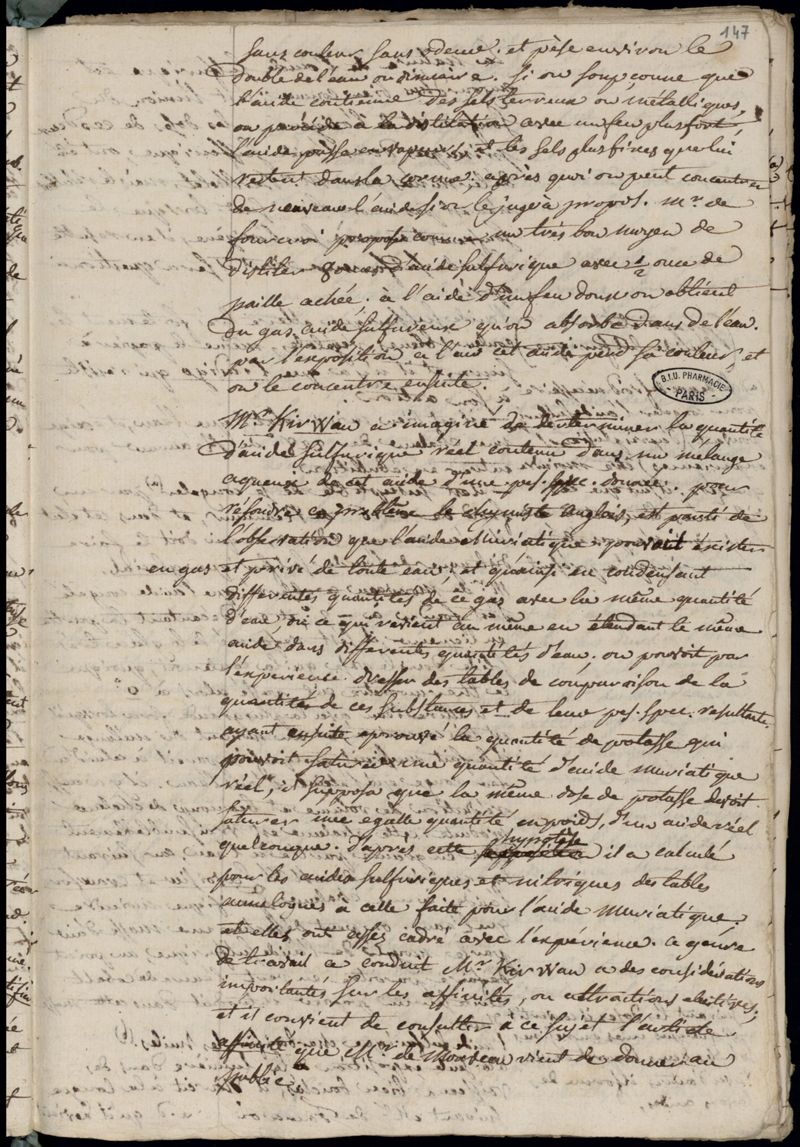 147
sans couleur sans odeur. et pèse environ le
double de l'eau ordinaire. Si on soupçonne que
l'acide contienne des sels terreux ou métalliques,
on procède à la distilation avec un feu plus fort,
l'acide passe en vapeurs, et les sels plus fixes que lui
restent dans la cornue. après quoi on peut concentrer
de nouveau l'acide si on le juge à propos. Mr. de
fourcroi propose comme un très bon moyen de
distiler onces d'acide sulfurique avec 1/2 once de
paille achée, à l'aide d'un feu doux on obtient
du gas acide sulfureux qu'on absorbe dans de l'eau.
par l'exposition à l'air cet acide perd sa couleur, et
on le concentre ensuite.
B.I.U. PHARMACIE
PARIS
Mr. Kirwan a imaginé de determiner la quantité
d'acide sulfurique réel contenu dans un mélange
aqueux de cet acide d'une pes. spec. donnée. pour
résoudre ce problème le chymiste anglois, est parti de
l'observation que l'acide muriatique pouvait exister
en gas et privé de toute eau, et qu'ainsi en condensant
differentes quantités de ce gas avec la même quantité
d'eau, ou ce qui revient au même en étendant le même
acide dans differentes quantités d'eau. on pouvoit par
l'experience dresser des tables de comparaison de la
quantité de ces substances et de leur pes. spec. resultante.
ayant ensuite eprouvé la quantité de potasse qui
pouvoit saturer une quantité d'acide muriatique
réel, il supposa que la même dose de potasse devoit
saturer une egalle quantité en poids, d'un acide réel
quelconque. d'après cette hypotèse il a calculé
pour les acides sulfuriques et nitriques des tables
analogues à celle faite pour l'acide muriatique.
et elles ont assez cadré avec l'expérience. ce genre
de travail a conduit Mr. Kirwan a des considérations
importantes sur les affinités, ou attractions electives,
et il convient de consulter à ce sujet l'article
affinité que Mr. de Morveau vient de donner au
public.